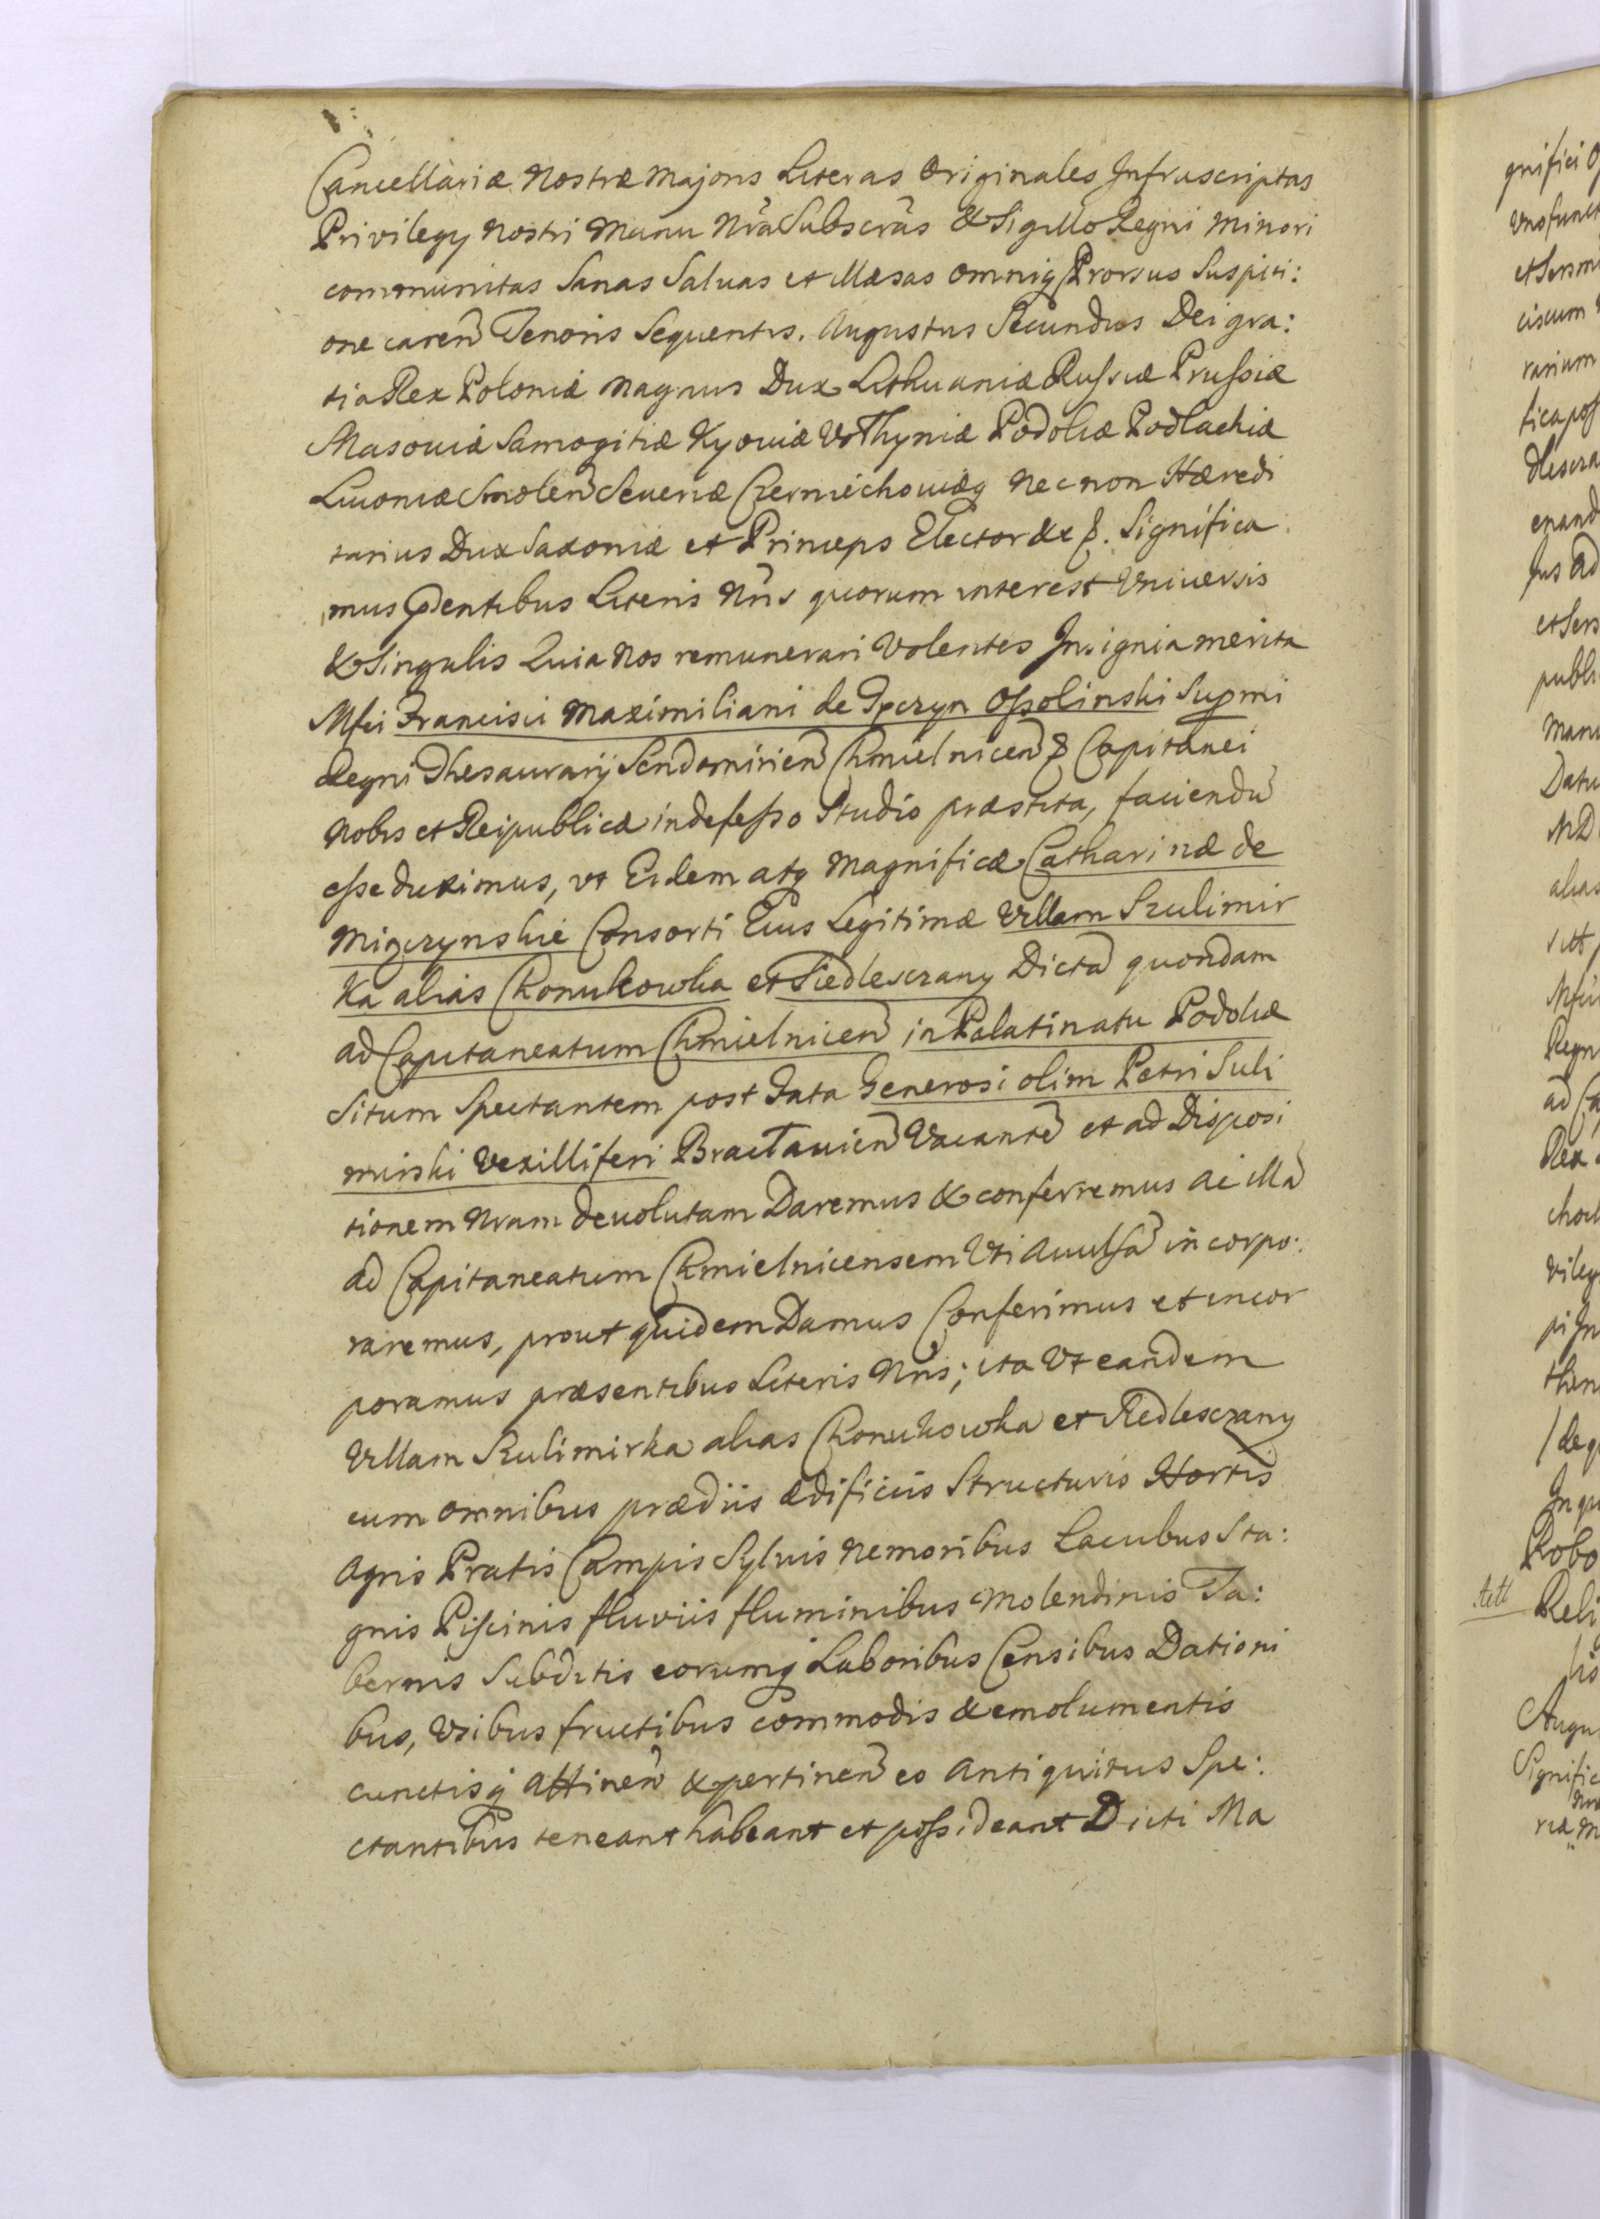 Cancellariæ Nostræ Majoris Literas Originales Infrascriptas
Privilegy Nostri Manu Nra Subscras & Sigillo Regni Minori
communitas Sanas Saluas et Illæsas omniq Prorsus Suspiti:
one caren Tenoris Sequentis. Augustus Secundus Dei gra:
tia Rex Poloniæ Magnus Dux Lithuaniæ Russiæ Prussiæ
Masouiæ Samogitiæ Kyouiæ Volhyniæ Podoliæ Podlachiæ
Liuoniæ Smolen Seueriæ Czerniechouiæq Necnon Hæredi
tarius Dux Saxoniæ et Princeps Elector &c. Significa
mus pdentibus Literis Nris quorum interest Vniuersis
& Singulis Quia Nos remunerari Volentes Insignia merita
Mfci Francisci Maximiliani de Tęczyn Ossolinski Supmi
Regni Thesaurarij Sendomirien Chmielnicen & Capitanei
Nobis et Reipublicæ indefesso Studio præstita, faciendu
esse duximus, vt Eidem atq Magnificæ Catharinæ de
Miączynskie Consorti Eius Legitimæ Villam Szulimir
Ka alias Chonukowka et Siedlesczany Dicta quondam
ad Capitaneatum Chmielnicen in Palatinatu Podoliæ
Situm Spectantem post Fata Generosi olim Petri Suli
mirski Vexilliferi Braclauien Vacante et ad Disposi
tionem Nram deuolutam Daremus & conferremus ac illa
ad Capitaneatum Chmielnicensem Vti Auulsa incorpo:
raremus, prout quidem Damus Conferimus et incor
poramus præsentibus Literis Nris; ita Vt eandem
Villam Szulimirka alias Chonukowka et Siedlesczany
cum omnibus prædiis ædificiis Structuris Hortis
Agris Pratis Campis Syluis Nemoribus Lacubus Sta:
gnis Piscinis fluviis fluminibus Molendinis Ta:
bernis Subditis eorumq Laboribus Censibus Dationi
bus, Vsibus fructibus commodis & emolumentis
cunctisq Attinen & pertinen eo Antiquitus Spe:
ctantibus teneant habeant et possideant Dicti Ma